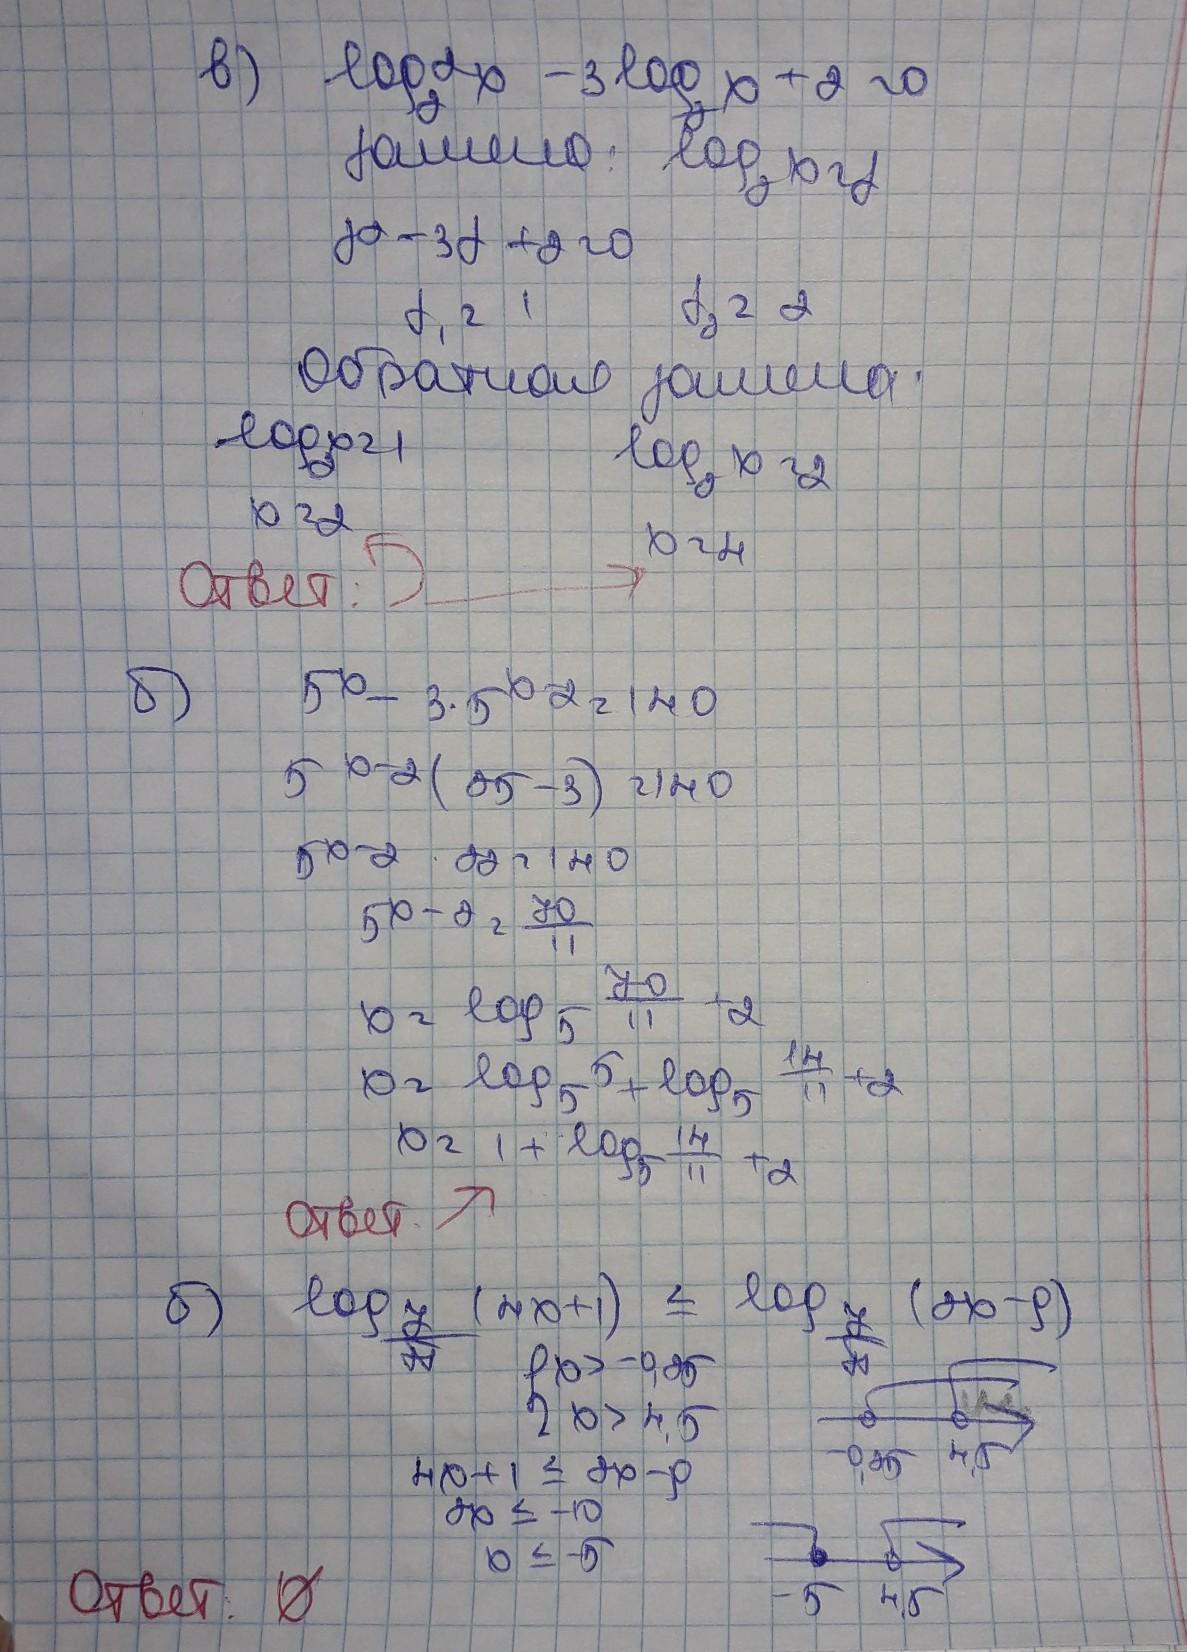 в) log₂²x − 3log₂x + 2 = 0
замена: log₂x = y
y² − 3y + 2 = 0
y₁ = 1 y₂ = 2
Обратная замена:
log₂x = 1 log₂x = 2
x = 2 x = 4
Ответ:
б) 5ˣ − 3·5ˣ⁻² = 140
5ˣ⁻²(25 − 3) = 140
5ˣ⁻² · 22 = 140
5ˣ⁻² = 70/11
x = log₅ 70/11 + 2
x = log₅5 + log₅ 14/11 + 2
x = 1 + log₅ 14/11 + 2
Ответ.
б) log_{7/π} (4x+1) ≤ log_{7/π} (2x−9)
{ x > −0,25
x > 4,5 −0,25 4,5
4x+1 ≤ 2x−9
2x ≤ −10
x ≤ −5 −5 4,5
Ответ: ∅